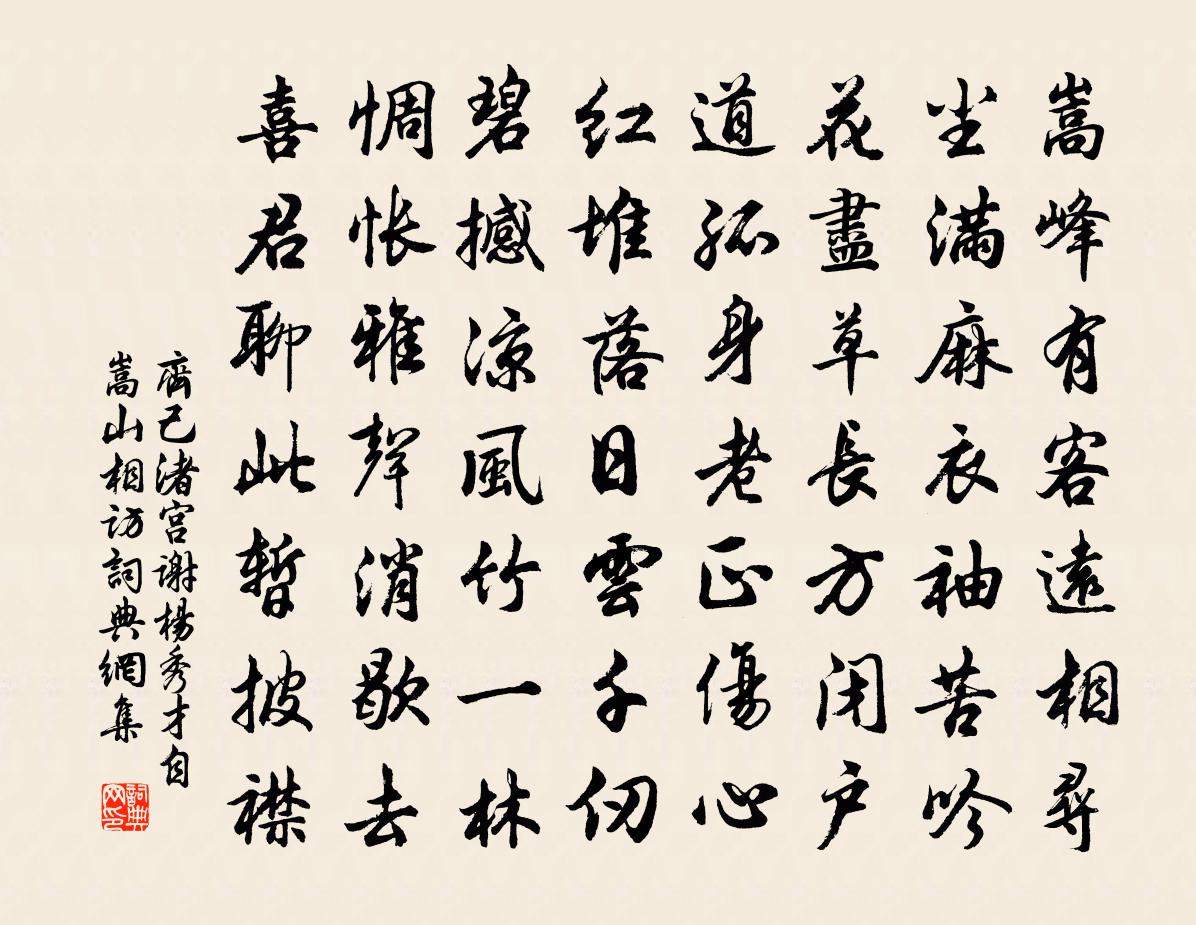 嵩峰有客遠相尋
尘满麻衣袖苦吟
花盡草長方闭户
道孤身老正傷心
红堆落日雲千仞
碧撼凉風竹一林
惆怅雅聲消歇去
喜君聊此暫披襟
齊己渚宫谢楊秀才自
嵩山相访詞典網集
詞典网印